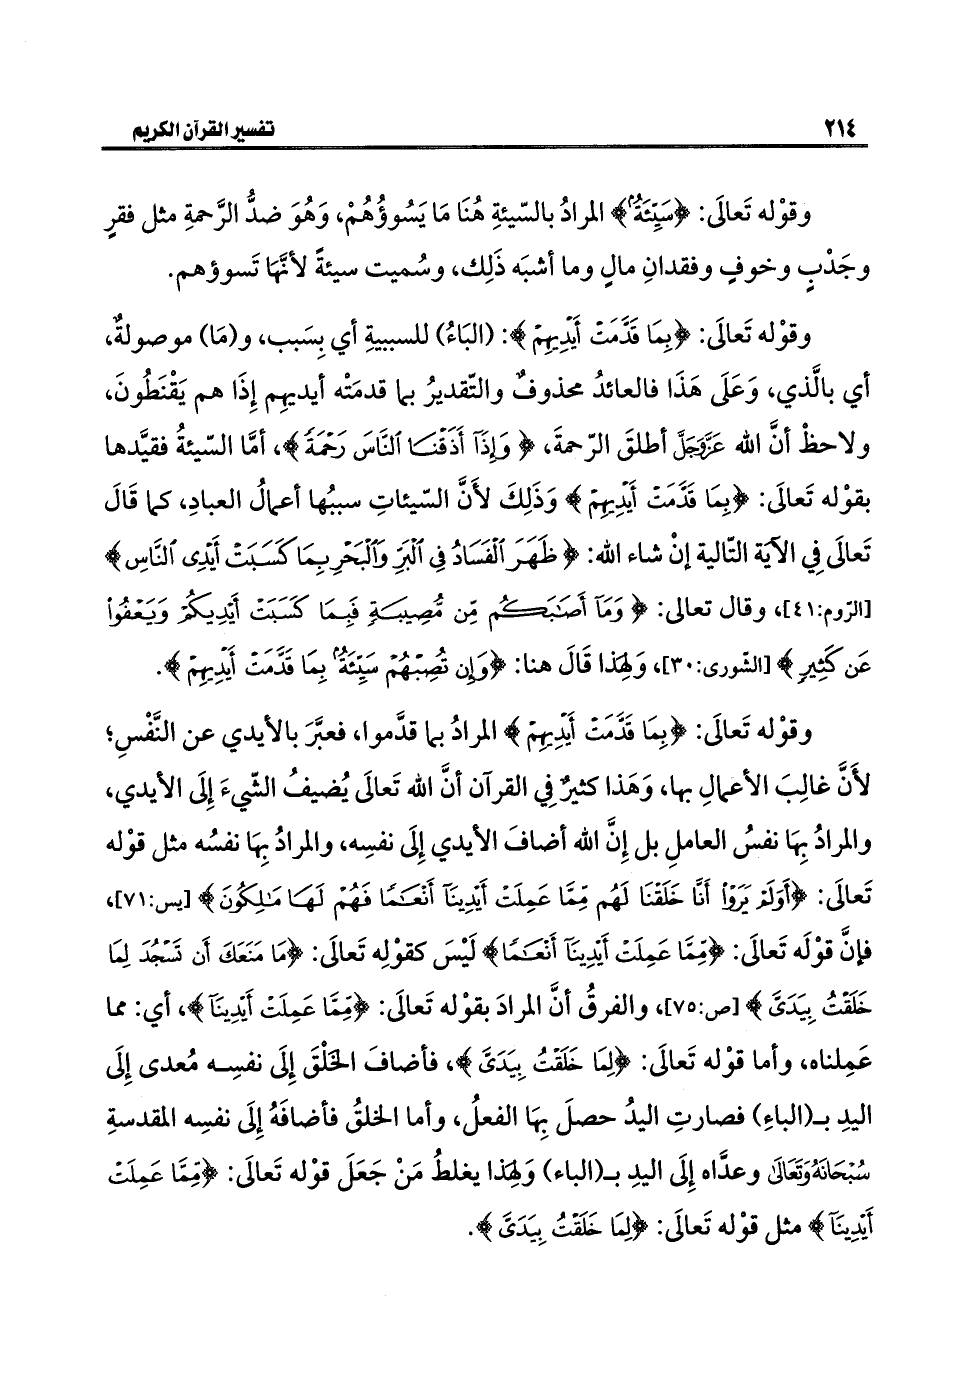 ٢١٤ تفسير القرآن الكريم
وقوْله تَعالَى: ﴿سَيِّئَةُۢ﴾ المرادُ بالسّيئةِ هُنَا مَا يَسُوؤُهُمْ، وَهُوَ ضدُّ الرَّحمةِ مثل فقرٍ
وجَدْبٍ وخوفٍ وفقدانِ مالٍ وما أشبَه ذَلِك، وسُميت سيئةً لأنَّهَا تَسوؤهم.
وقوْله تَعالَى: ﴿بِمَا قَدَّمَتْ أَيْدِيهِمْ﴾: (البَاءُ) للسببيةِ أي بِسَبب، و(مَا) موصولةٌ،
أي بالَّذي، وَعَلَى هَذَا فالعائدُ محذوفٌ والتّقديرُ بما قدمَتْه أيديهم إِذَا هم يَقْنَطُونَ،
ولاحظْ أنَّ الله عَزَّوَجَلَّ أطلقَ الرّحمةَ، ﴿وَإِذَآ أَذَقْنَا ٱلنَّاسَ رَحْمَةً﴾، أمَّا السّيئةُ فقيَّدها
بقوْله تَعالَى: ﴿بِمَا قَدَّمَتْ أَيْدِيهِمْ﴾ وَذَلِكَ لأَنَّ السّيئاتِ سببُها أعمالُ العبادِ، كما قَالَ
تَعالَى فِي الآيَة التّالية إنْ شاء الله: ﴿ظَهَرَ ٱلْفَسَادُ فِي ٱلْبَرِّ وَٱلْبَحْرِ بِمَا كَسَبَتْ أَيْدِى ٱلنَّاسِ﴾
[الرّوم:٤١]، وقال تعالى: ﴿وَمَآ أَصَٰبَكُم مِّن مُّصِيبَةٍ فَبِمَا كَسَبَتْ أَيْدِيكُمْ وَيَعْفُوا۟
عَن كَثِيرٍ﴾ [الشّورى:٣٠]، وَلهذا قَالَ هنا: ﴿وَإِن تُصِبْهُمْ سَيِّئَةُۢ بِمَا قَدَّمَتْ أَيْدِيهِمْ﴾.
وقوْله تَعالَى: ﴿بِمَا قَدَّمَتْ أَيْدِيهِمْ﴾ المرادُ بما قدَّموا، فعبَّرَ بالأيدي عن النَّفْسِ؛
لأَنَّ غالِبَ الأعمالِ بها، وَهَذا كثيرٌ فِي القرآن أنَّ الله تَعالَى يُضيفُ الشّيءَ إِلَى الأيدي،
والمرادُ بِهَا نفسُ العاملِ بل إنَّ الله أضافَ الأيدي إِلَى نفسِه، والمرادُ بِهَا نفسُه مثل قوْله
تَعالَى: ﴿أَوَلَمْ يَرَوْا۟ أَنَّا خَلَقْنَا لَهُم مِّمَّا عَمِلَتْ أَيْدِينَآ أَنْعَٰمًا فَهُمْ لَهَا مَٰلِكُونَ﴾ [يس:٧١]،
فإنَّ قوْلَه تَعالَى: ﴿مِّمَّا عَمِلَتْ أَيْدِينَآ أَنْعَٰمًا﴾ لَيْس كقوْلِه تَعالَى: ﴿مَا مَنَعَكَ أَن تَسْجُدَ لِمَا
خَلَقْتُ بِيَدَىَّ﴾ [ص:٧٥]، والفرقُ أنَّ المرادَ بقوْله تَعالَى: ﴿مِّمَّا عَمِلَتْ أَيْدِينَآ﴾، أي: مما
عَمِلناه، وأما قوْله تَعالَى: ﴿لِمَا خَلَقْتُ بِيَدَىَّ﴾، فأضافَ الخَلْقَ إِلَى نفسِه مُعدى إِلَى
اليدِ بـ(الباءِ) فصارتِ اليدُ حصلَ بِهَا الفعلُ، وأما الخلقُ فأضافَهُ إِلَى نفسِه المقدسةِ
سُبْحَانَهُ وَتَعَالَى وعدَّاه إِلَى اليدِ بـ(الباء) وَلهذا يغلطُ مَنْ جَعَلَ قوْله تَعالَى: ﴿مِّمَّا عَمِلَتْ
أَيْدِينَآ﴾ مثل قوْله تَعالَى: ﴿لِمَا خَلَقْتُ بِيَدَىَّ﴾.